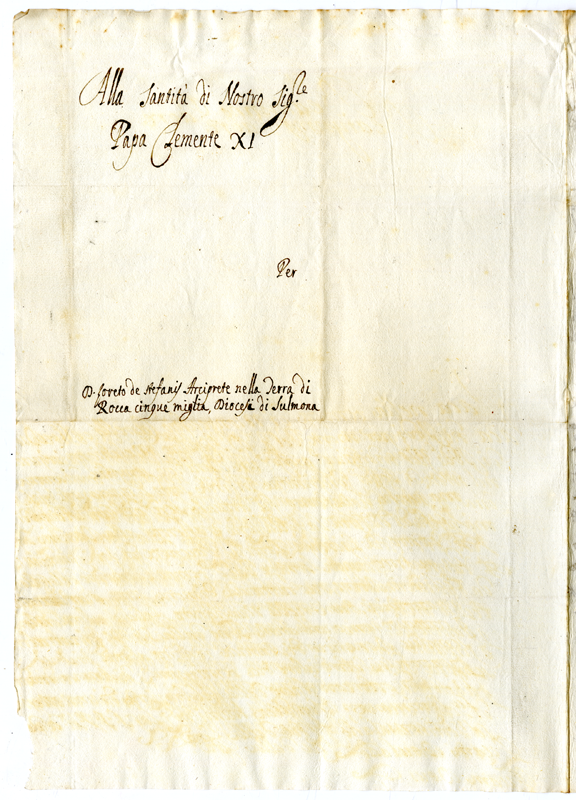 Alla Santità di Nostro Sig.re
Papa Clemente XI
Per
D. Loreto de Stefanis Arciprete nella Terra di
Rocca cinque miglia, Diocesi di Sulmona